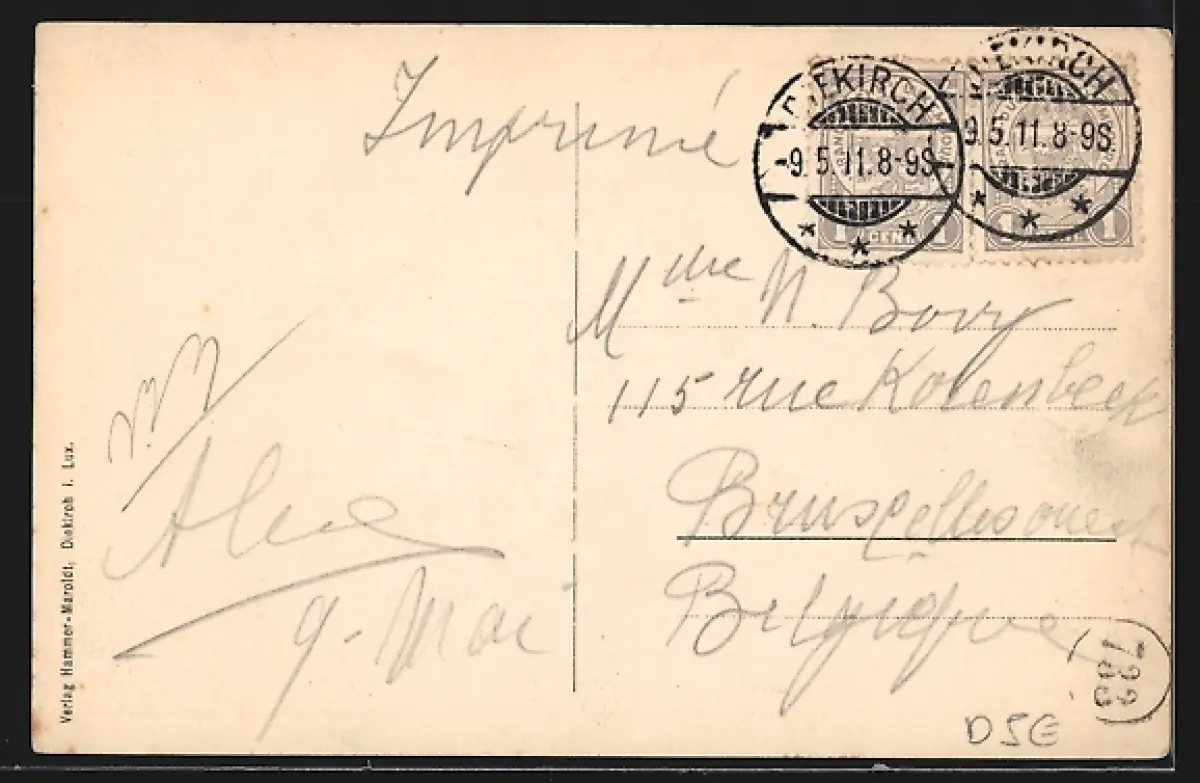 Imprimé
DIEKIRCH
-9.5.11.8-9S
DIEKIRCH
9.5.11.8-9S
1 CENT. 1
1 1
Mme N. Bovy
115 rue Kolenbeek
Bruxelles ouest
Belgique
9. Mai
Verlag Hammer-Maroldt, Diekirch i. Lux.
733
DSE